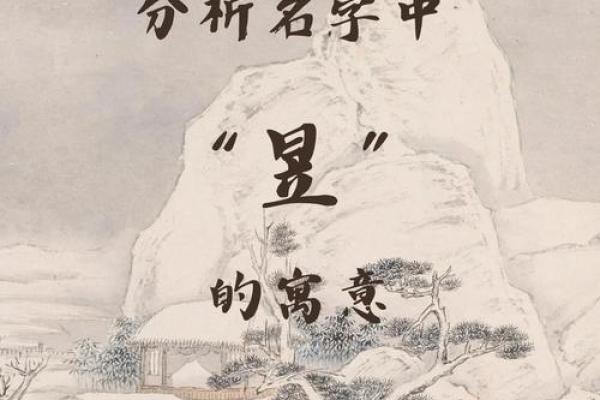 分析名字中
“昱”
的寓意